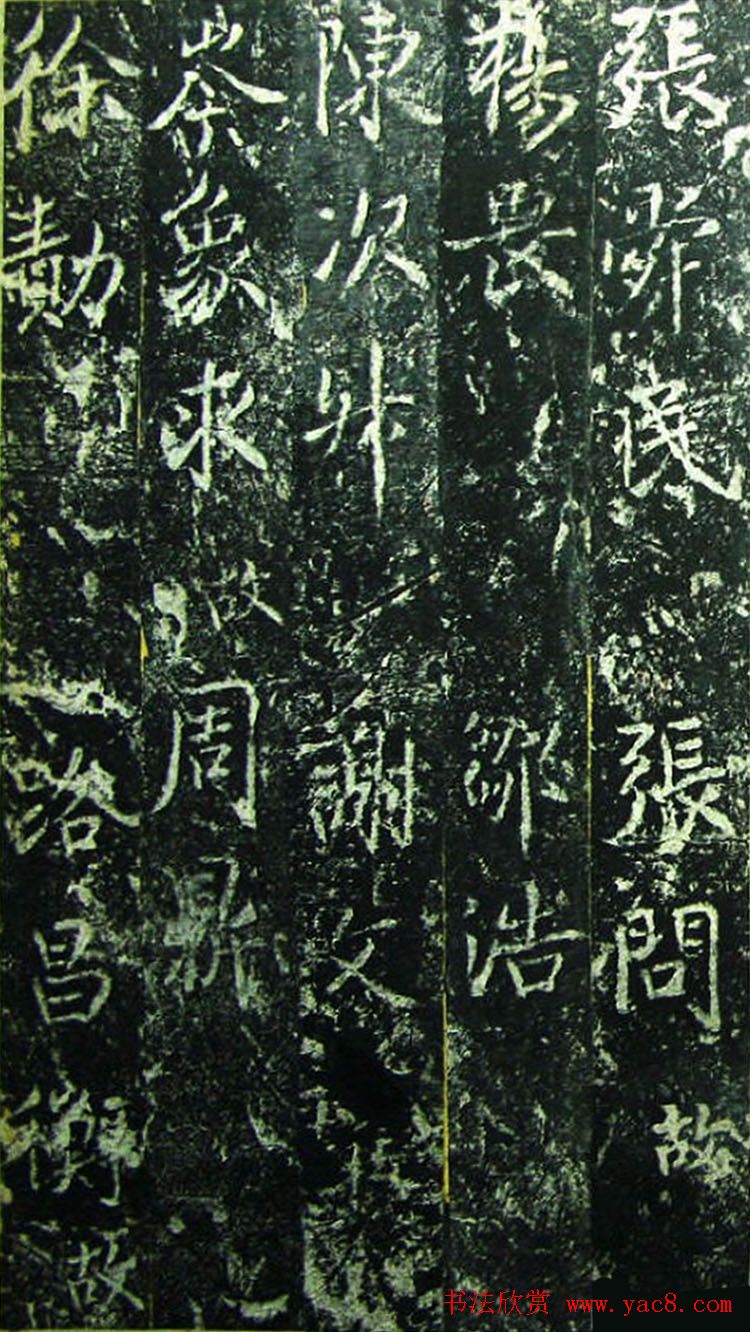 張舜民 張問 故
楊畏 鄒浩
陳次升 謝文
岑象求 故 周鼎
徐勣 路昌衡 故
书法欣赏 www.yac8.com